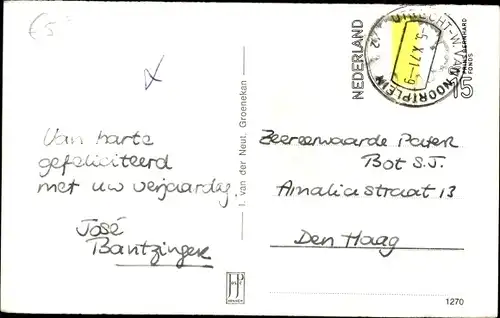 €5
Van harte
gefeliciteerd
met uw verjaardag.
José
Bantzinger
I. van der Neut, Groenekan
NEDERLAND
PRINS BERNHARD
FONDS
15
UTRECHT-W. VAN NOORTPLEIN
Zeereerwaarde Pater
Bot S.J.
Amaliastraat 13
Den Haag
1270